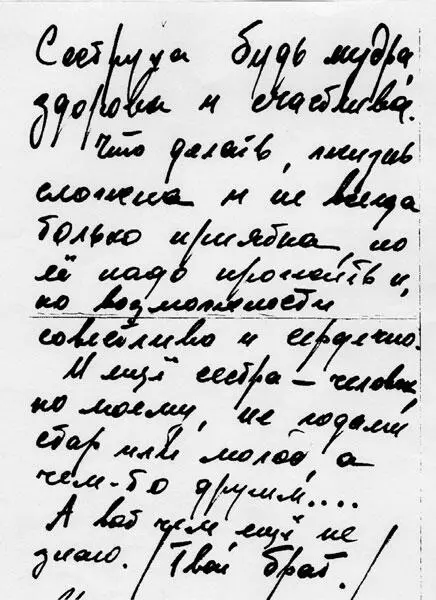 Сеструха будь мудра,
здорова и счастлива.
Что делать, жизнь
сложна и не всегда
только приятна, но
её надо прожить и,
по возможности
совестливо и сердечно.
И ещё сестра – человек,
по моему, не годами
стар или молод, а
чем-то другим....
А вот чем ещё не
знаю. / Твой брат. /